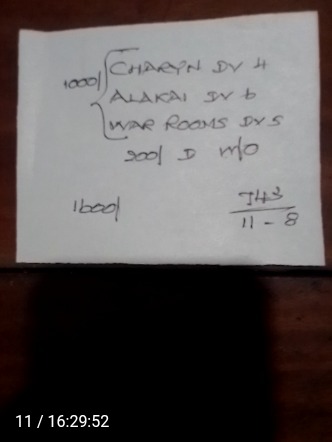 1000/ CHARYN DV 4
ALAKAI DV 6
WAR ROOMS DV 5
200/ D W/O
1600/ J43
11 - 8
11 / 16:29:52